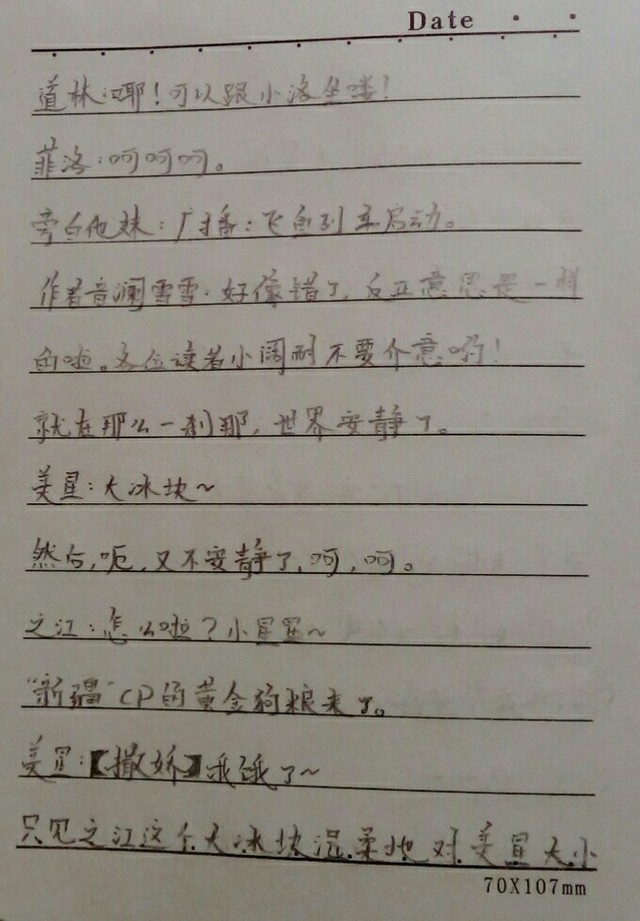 Date
道林:耶!可以跟小洛坐喽!
菲洛:呵呵呵。
旁白他妹:广播:飞鱼列车启动。
作者音澜雪雪:好像错了,反正意思是一样
的啦。各位读者小阔耐不要介意哟!
就在那么一刹那,世界安静了。
美星:大冰块~
然后,呃,又不安静了,呵,呵。
之江:怎么啦?小星星~
“新疆”CP的黄金狗粮来了。
美星:【撒娇】我饿了~
只见之江这个大冰块温柔地对美星大小
70X107mm